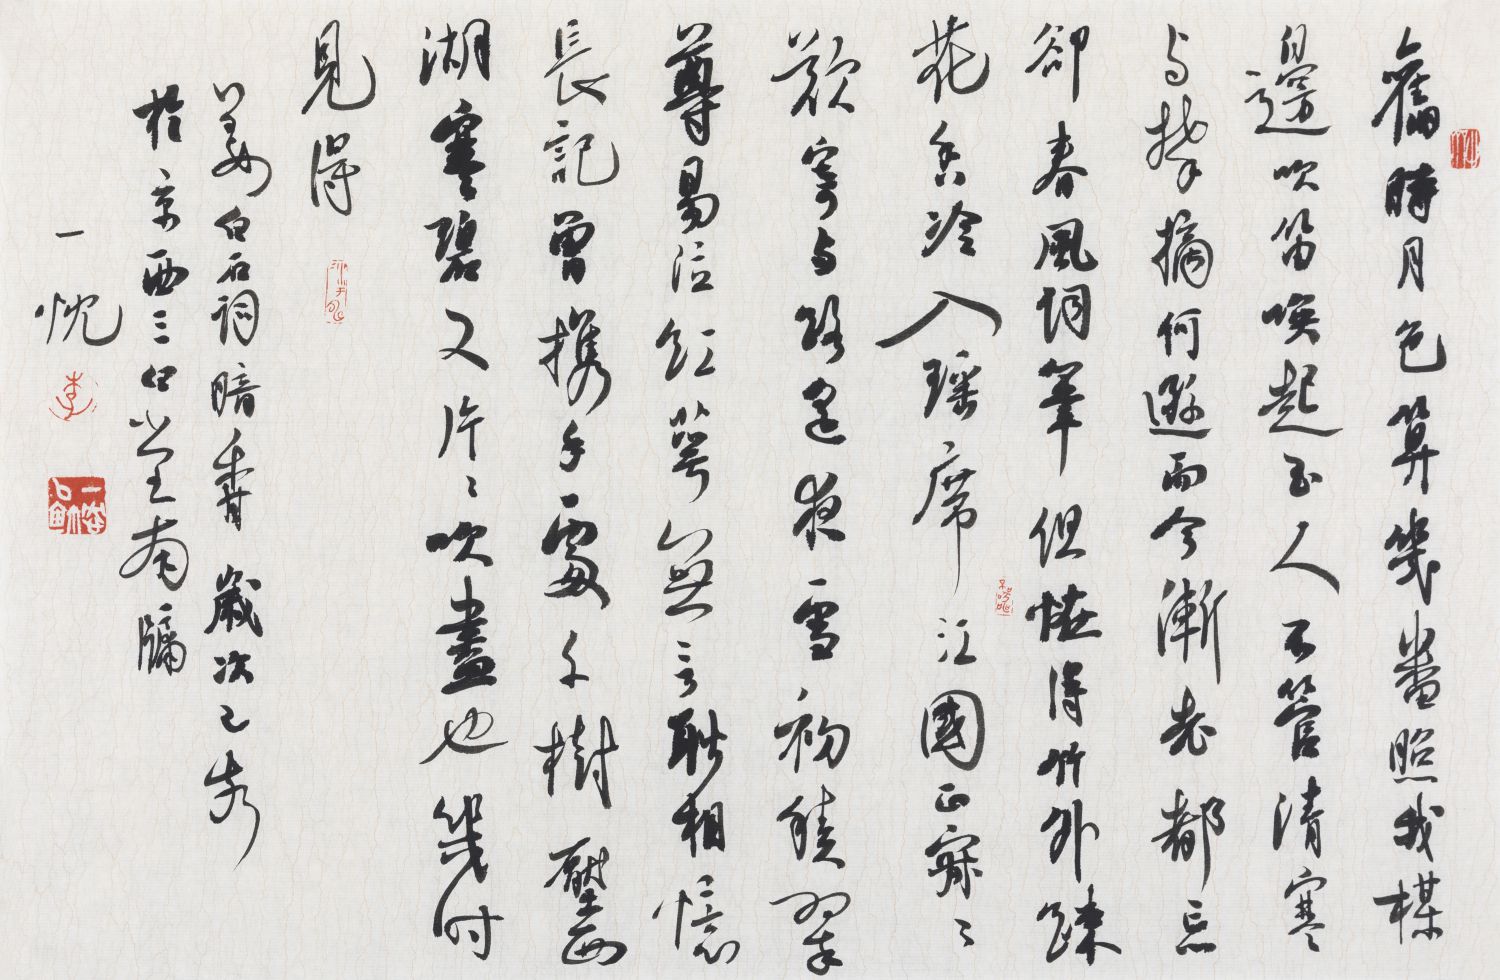 舊時月色算幾番照我楳
邊吹笛喚起玉人不管清寒
与攀摘何遜而今漸老都忘
卻春風詞筆但恠得竹外疎
花香冷入瑤席江國正寂〻
歎寄与路遙夜雪初積翠
尊易泣紅萼無言耿相憶
長記曾攜手處千樹壓西
湖寒碧又片〻吹盡也幾時
見得
姜白石詞暗香歲次
於京西三堂南牖
一忱
李